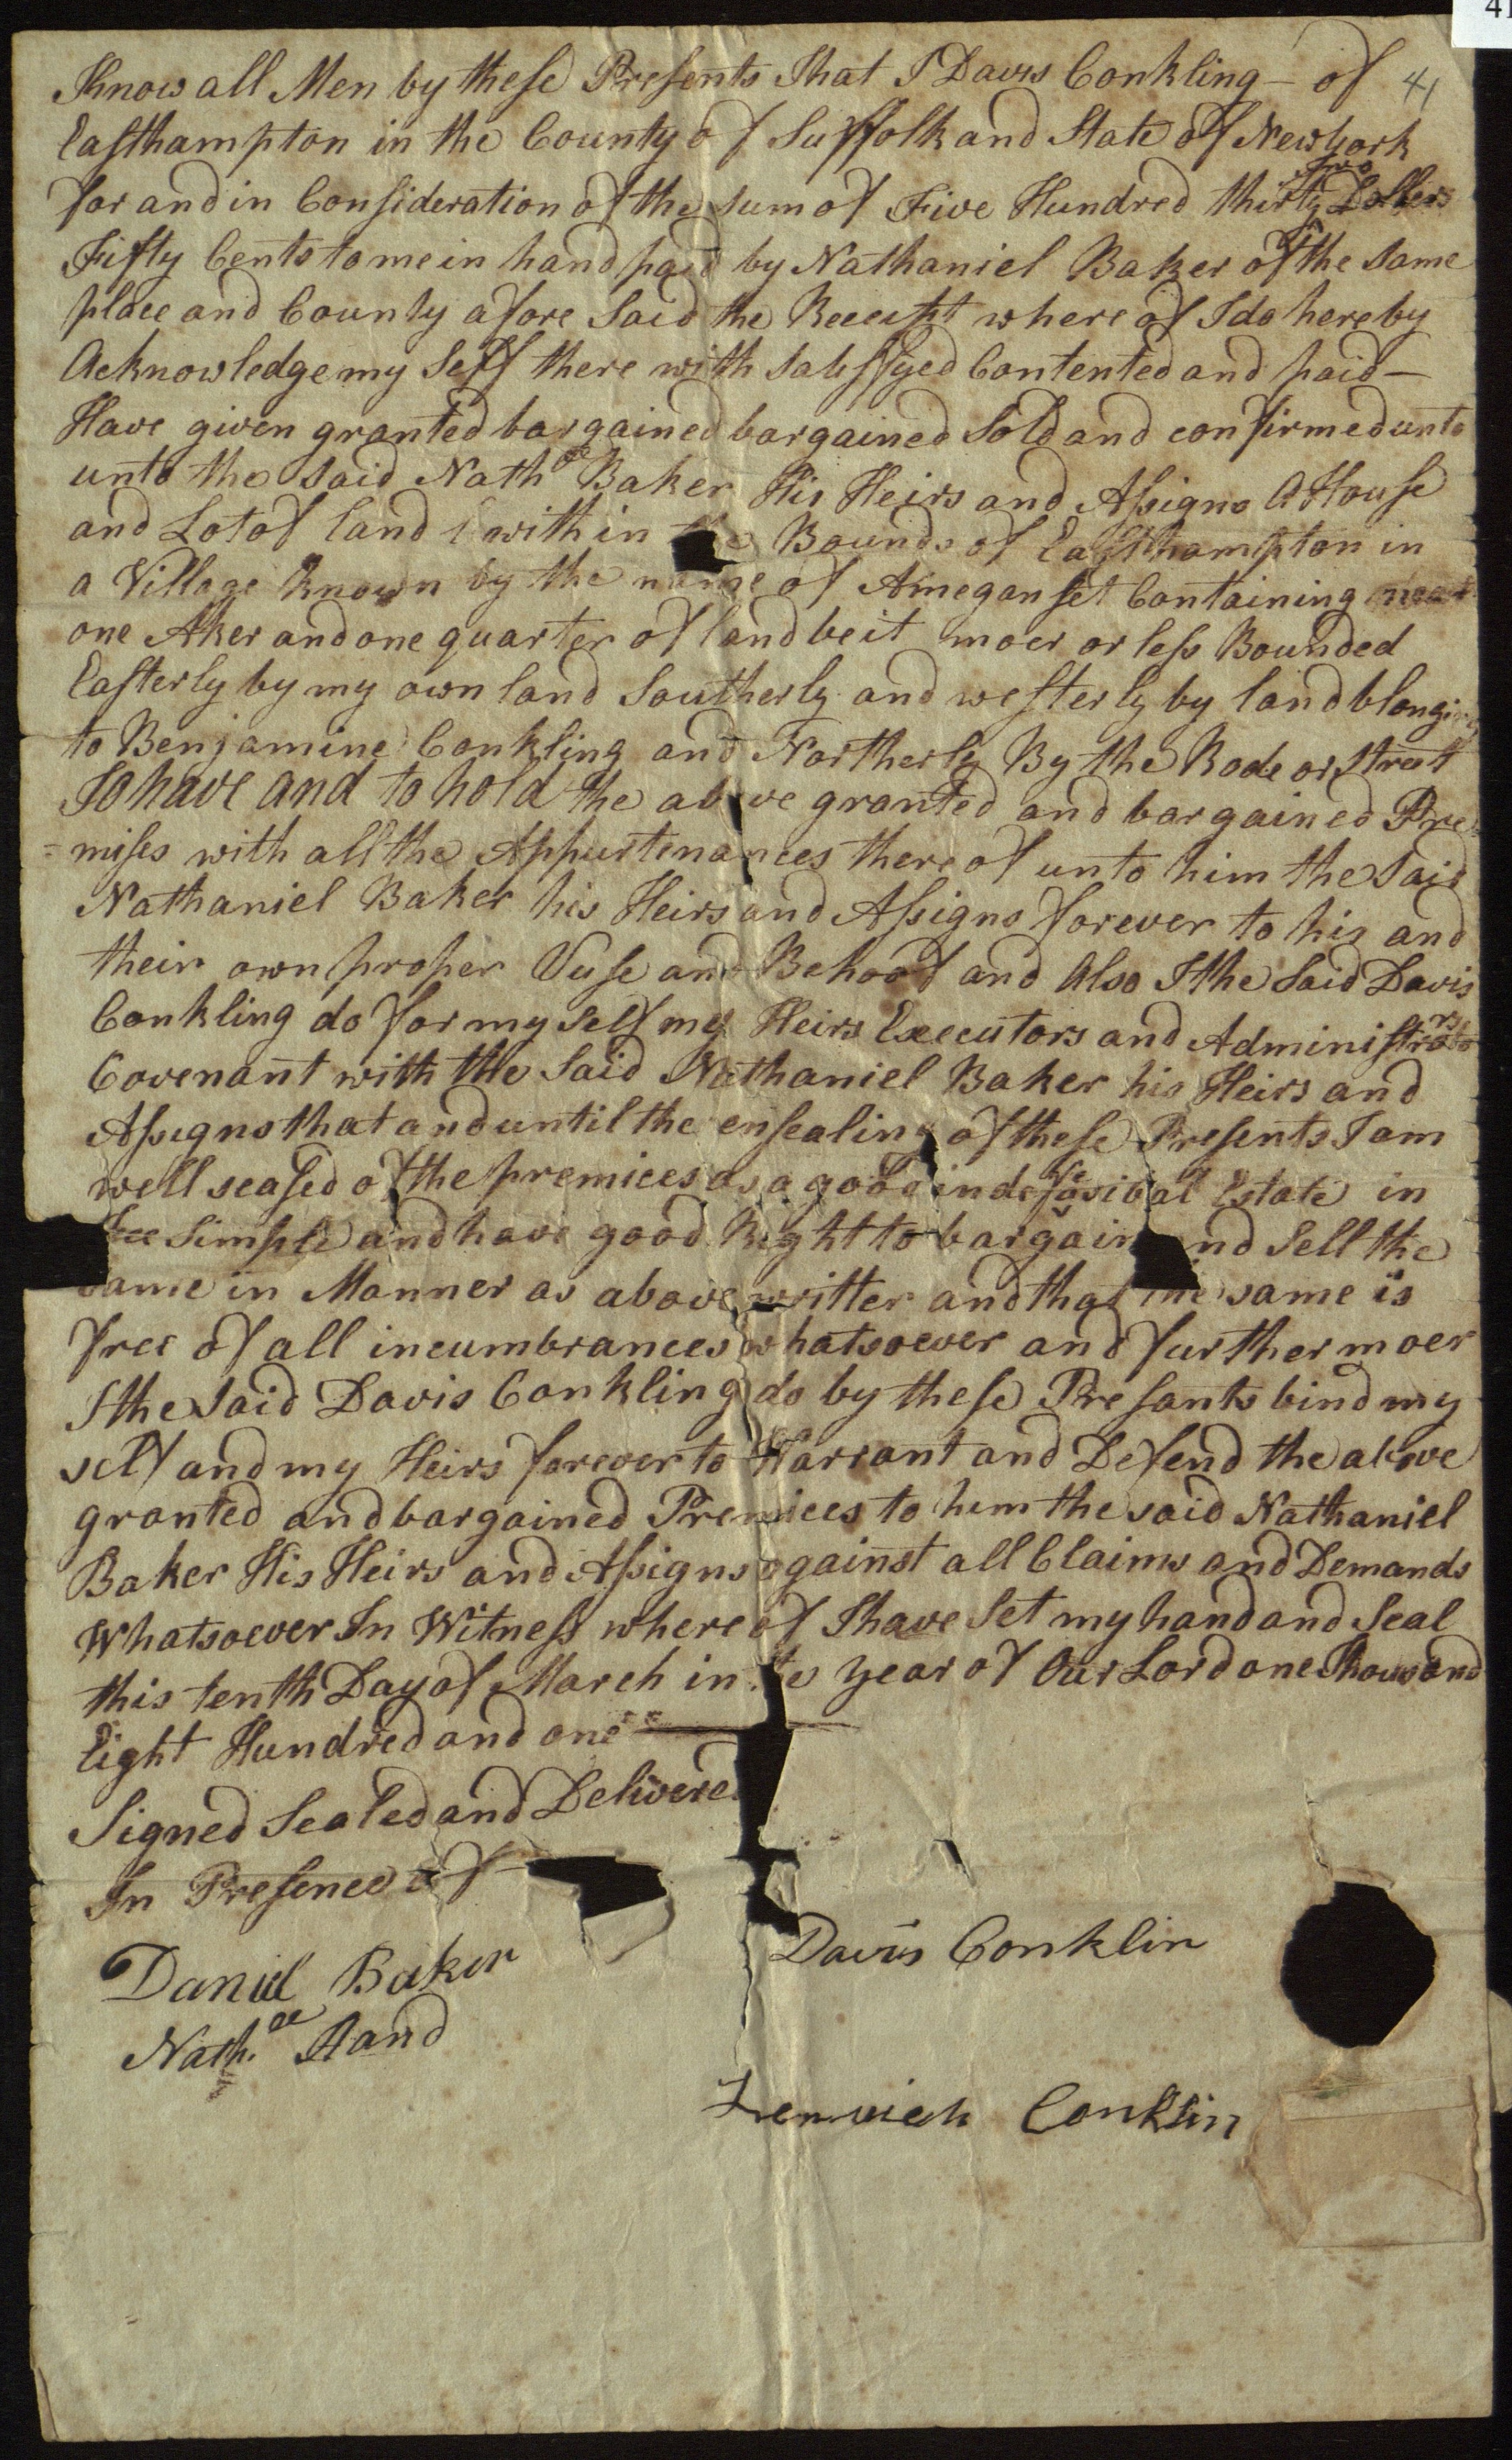 41
Know all Men by these Presents That I Davis Conkling — of 41
Easthampton in the County of Suffolk and State of Newyork
for and in Consideration of the sum of Five Hundred thirty Two Dollers
Fifty Cents to me in hand paid by Nathaniel Baker of the same
place and County afore Said the Receipt where of I do hereby
Acknowledge my Self there with Satisfyed Contented and paid —
Have given granted bargained bargained Sold and confirmed unto
unto the said Nathel Baker His Heirs and Assigns A House
and Lot of land within the Bounds of Easthampton in
a Village known by the name of Ameganset Containing near
one Aker and one quarter of land be it moer or less Bounded
Easterly by my own land Southerly and westerly by land blonging
to Benjamine Conkling and Northerly By the Rode or street
To have and to hold the above granted and bargained Pre=
=mises with all the Appurtenances there of unto him the Said
Nathaniel Baker his Heirs and Assigns forever to his and
their own proper Vuse and Behoof and Also I the Said Davis
Conkling do for my Self my Heirs Executors and Administrators
Covenant with the Said Nathaniel Baker his Heirs and
Assigns that and until the ensealing of these Presents I am
well seased of the premices as a good indefeasibal Estate in
Fee Simple and have good Right to bargain and Sell the
Same in Manner as above writter and that the same is
free of all incumbrances whatsoever and further moer
I the Said Davis Conkling do by these Presants bind my
self and my Heirs forever to Warrant and Defend the above
granted and bargained Premices to him the said Nathaniel
Baker His Heirs and Assigns against all Claims and Demands
Whatsoever In Witness where of I have Set my hand and Seal
this tenth Day of March in the year of Our Lord one Thousand
Eight Hundred and one
Signed Sealed and Delivered
In Presence of
Daniel Baker
Nath.el Hand
Davis Conklin
Conklin